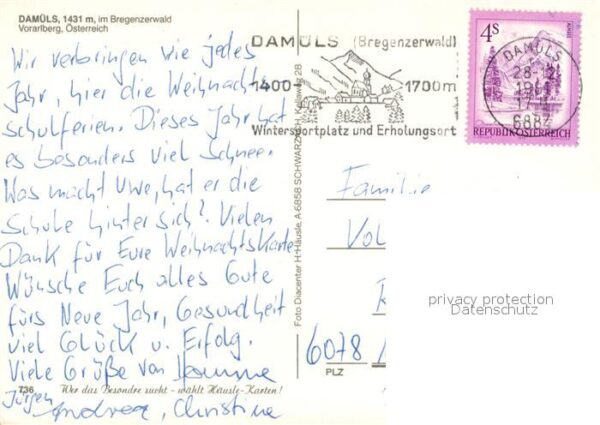 DAMÜLS, 1431 m, im Bregenzerwald
Vorarlberg, Österreich
Wir verbringen wie jedes
Jahr, hier die Weihnachts-
schulferien. Dieses Jahr hat
es besonders viel Schnee.
Was macht Uwe, hat er die
Schule hinter sich? Vielen
Dank für Eure Weihnachtskarte
Wünsche Euch alles Gute
fürs Neue Jahr, Gesundheit
viel Glück u. Erfolg.
Viele Grüße von
Jürgen
Andrea, Christine
736
Wer das Besondre sucht - wählt Häusle-Karten!
Foto Diacenter H. Häusle, A-6858 SCHWARZACH, 28
DAMÜLS (Bregenzerwald)
1400 - 1700m
Wintersportplatz und Erholungsort
DAMÜLS
6884
4S
REPUBLIK ÖSTERREICH
Familie
Vol
6078
PLZ
privacy protection
Datenschutz